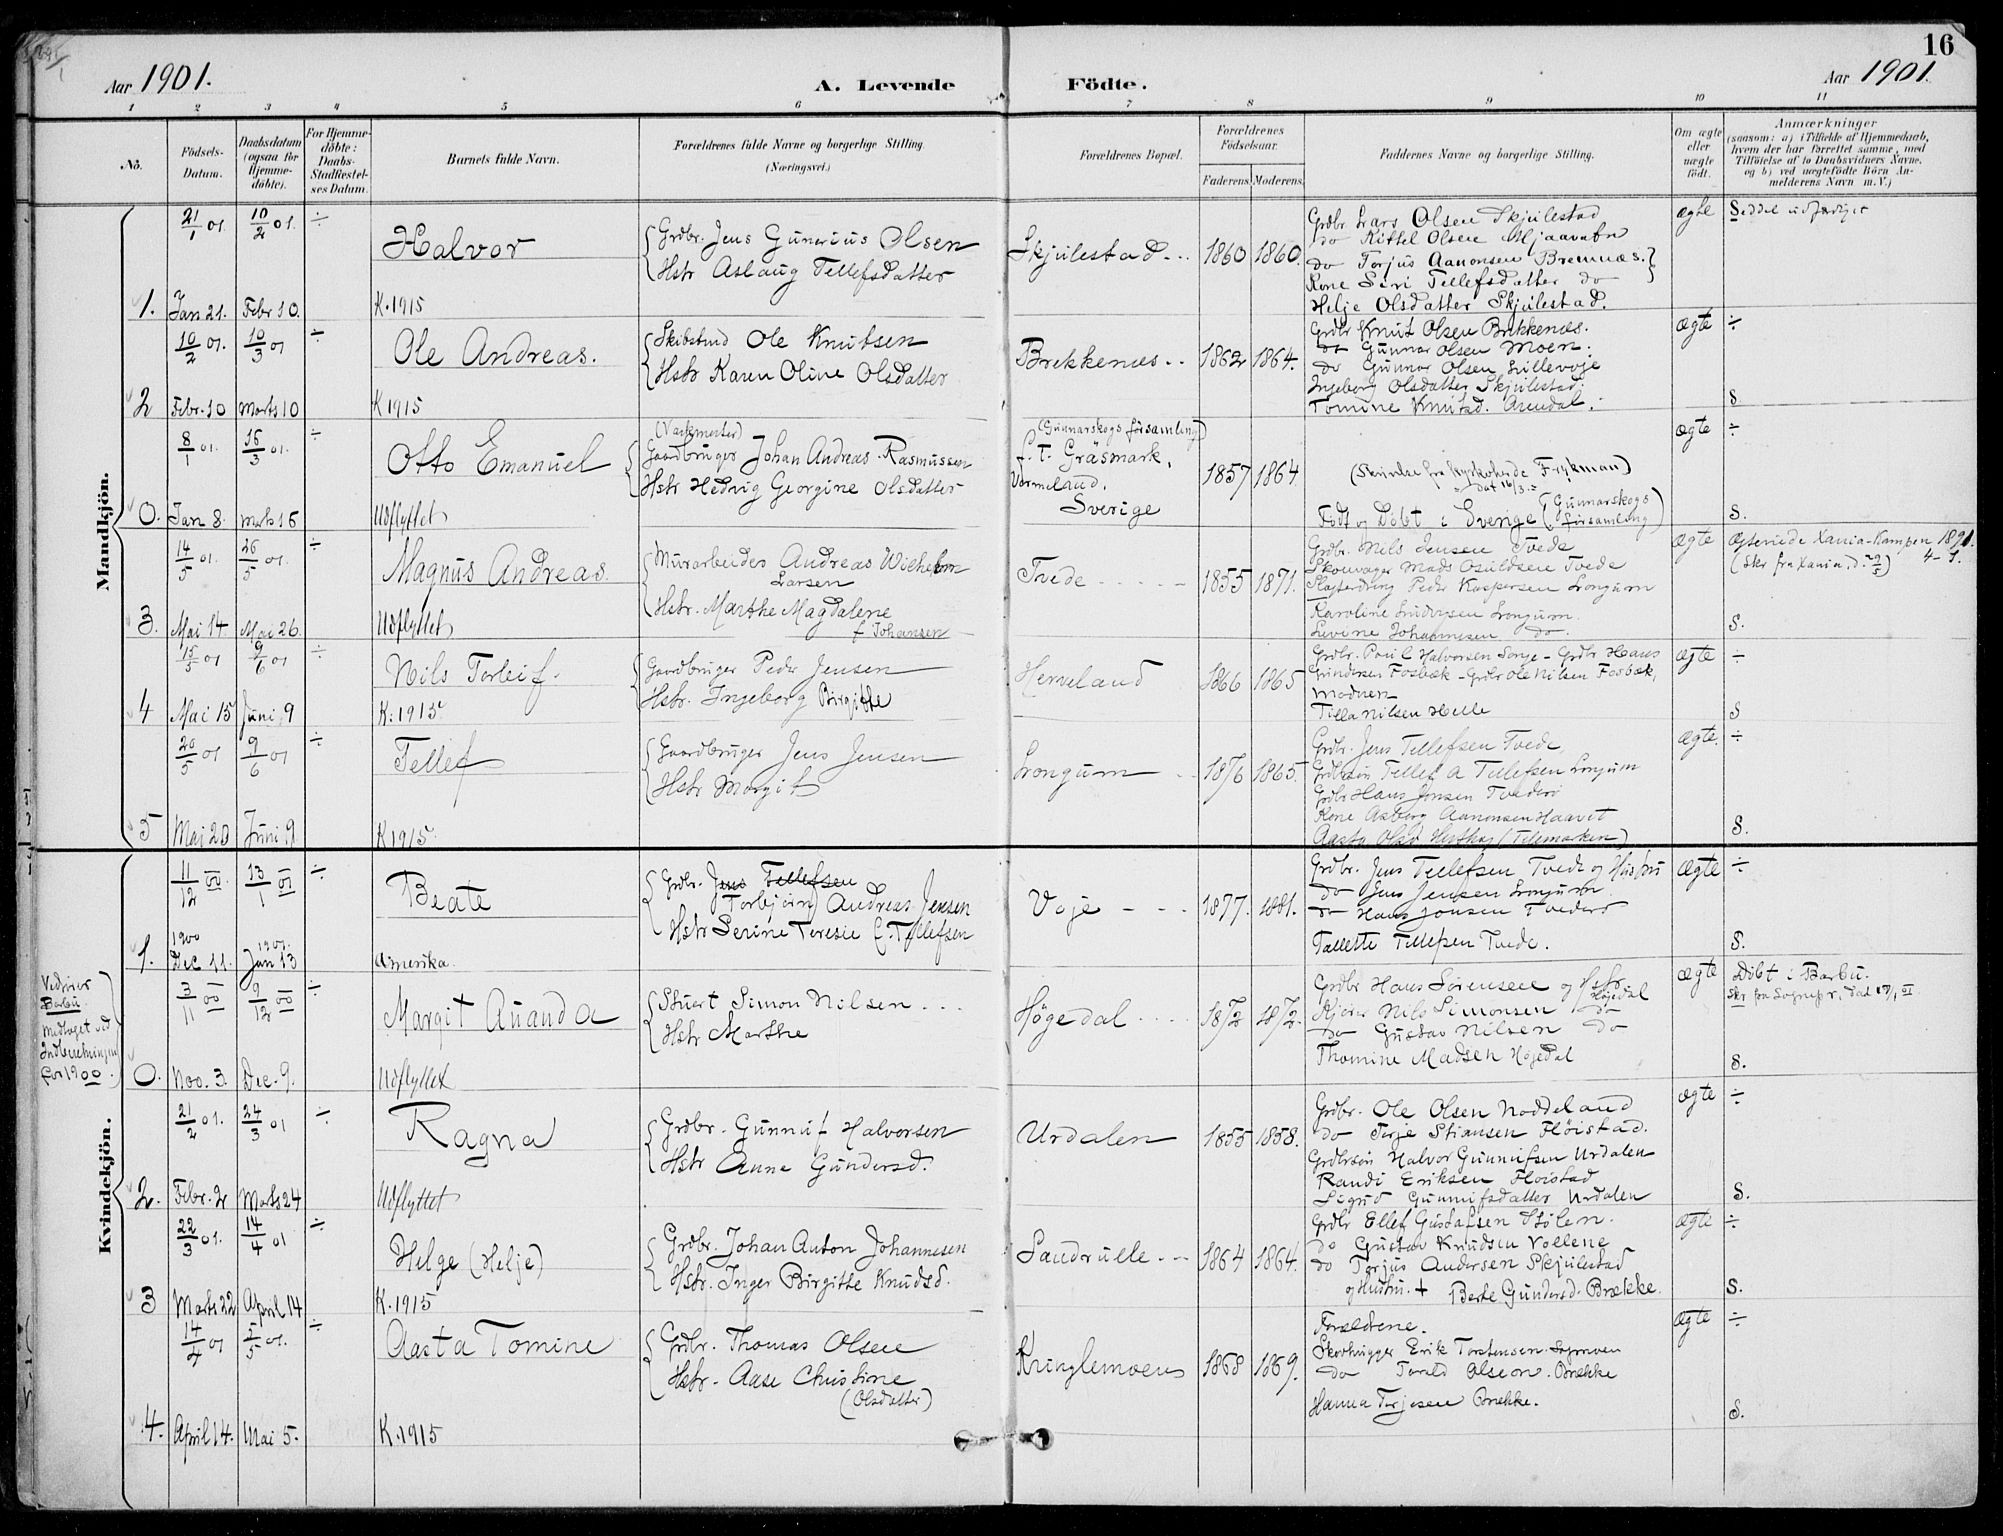 16
Aar 1901.
A. Levende Födte.
Aar 1901.
1 2 3 4 5 6 7 8 9 10 11
No.
Födsels-Datum.
Daabsdatum (ogsaa for Hjemme-döbte).
For Hjemme-döbte: Daabs-Stadfæstel-ses Datum.
Barnets fulde Navn.
Forældrenes fulde Navne og borgerlige Stilling. (Næringsvei.)
Forældrenes Bopæl.
Forældrenes Födselsaar.
Faderens. Moderens.
Faddernes Navne og borgerlige Stilling.
Om ægte eller uægte födt.
Anmærkninger
(saasom: a) i Tilfælde af Hjemmedaab, hvem der har forrettet samme, med Tilföielse af to Daabsvidners Navne, og b) ved uægtefödte Börn An-melderens Navn m. V.)
Mandkjön.
21/1 01. 10/2 01. ÷
Halvor
Grdbr. Jens Gunerius Olsen
Hstr Aslaug Tellefsdatter
Skjulestad
1860 1860.
Grdbr Lars Olsen Skjulestad
do Kittel Olsen Mjaavatn
do Torjus Aanonsen Bremnæs.
Kone Siri Tellefsdatter do
Helje Olsdatter Skjulestad.
ægte
Seddel udfærdiget
1. Jan 21. Febr 10. K. 1915
10/2 01. 10/3 01 ÷
Ole Andreas.
Ole Knutsen
Hstr Karen Oline Olsdatter
Brekkenæs
1862 1864.
Grdbr Knut Olsen Brekkenæs.
do Gunnar Olsen Moen.
do Gunnar Olsen Lillevoje
Ingeborg Olsdatter Skjulestad.
Tomine Knutsd. Arendal.
ægte ÷
S
2 Febr. 10 Marts 10 K 1915
8/1 01. 16/3 01. ÷
Otto Emanuel
(Værkmester)
Gaardbruger Johan Andreas Rasmussen
Hstr Hedvig Georgine Olsdatter
(Gunnarskogs församling)
f. t. Gräsmark,
Vermeland,
Sverige
1857 1864
(Skrivelse fra Kyrkoherde Frykman)
dat 16/3.
Født og Døbt i Sverige (Gunnarskogs församling)
ægte ÷
S.
0. Jan 8. Marts 16 Udflyttet
14/5 01. 26/5 01. ÷
Magnus Andreas.
Murarbeider Andreas Wilhelm
Larsen
Hstr. Marthe Magdalene
f. Johansen
Tvede
1855 1871.
Grdbr. Nils Jensen Tvede
Skomager Mads Osuldsen Tvede
Peder Kaspersen Longum
Karoline Ludvigsen Longum.
Levine Johannesen do.
ægte
Ægteviede Xania-Kampen 1891.
(Skr fra Xania, d. 29/5) 4-1.
S.
3. Mai 14 Mai 26. Udflyttet
15/5 01 9/6 01 ÷
Nils Torleif.
Gaardbruger Peder Jensen
Hstr. Ingeborg Birgitte
Herveland
1866 1865
Grdbr. Poul Halvorsen Songe - Grdbr Hans
Gundersen Fosbæk - Grdbr Ole Nilsen Fosbæk,
Tilla Nilsen Helle
ægte ÷
S
4 Mai 15 Juni 9 K. 1915
20/5 01 9/6 01 ÷
Tellef
Gaardbruger Jens Jensen
Hstr Margit
Longum
1876 1865.
Grdbr. Jens Tellefsen Tvede
Grdbrsøn Tellef A Tellefsen Longum
Grdbr Hans Jonsen Tvederø
Kone Asborg Aanonsen Haavet
Aasta Olsd (Telemarken)
ægte. ÷
S.
5 Mai 20 Juni 9 K 1915
Kvindekjön.
11/12 00 13/1 01 ÷
Beate
Grdbr. Jens Tellefsen
Torbjørn Andreas Jensen
Hstr Serine Teresie f. Tellefsen
Voje
1877. 1881.
Grdbr. Jens Tellefsen Tvede og Hustru
do Jens Jensen Longum
do Hans Jonsen Tvederø
Tallette Tellefsen Tvede.
ægte ÷
S.
1900 1901.
1. Dec 11. Jan 13 Amerika.
Vedrører
Barbu.
Medtaget ved
Indberetningen
for 1900.
3/11 00 9/12 00 ÷
Margit Amanda
Stuert Simon Nilsen
Hstr Marthe
Høgedal
1872 1872.
Grdbr Hans Sørensen og Hstr. Højedal
Kjører Nils Simonsen do
do Gustav Nilsen do
Thomine Madsen Højedal
ægte
Døbt i Barbu.
Skr fra Sognepr. dat 17/1 01
S.
0. Nov. 3. Dec. 9. Udflyttet
21/2 01. 24/3 01 ÷
Ragna
Grdbr. Gunnuf Halvorsen
Hstr Anne Gundersd.
Urdalen
1855 1858.
Grdbr. Ole Olsen Noddeland
do Terje Stiansen Fløistad.
Grdbrsøn Halvor Gunnufsen Urdalen
Randi Eriksen Fløistad
Sigrid Gunnufsdatter Urdalen
ægte ÷
S.
2. Febr. 2 Marts 24 Udflyttet
22/3 01. 14/4 01 ÷
Helge (Helje)
Grdbr. Johan Anton Johannesen
Hstr. Inger Birgitte Knudsd.
Saudrulle
1864 1864.
Grdbr Ellef Gustafsen Stølen.
do Gustav Knudsen Vollene
do Torjus Andersen Skjulestad
og Hustru. + Berte Gundersd. Brække.
ægte ÷
S.
3 Marts 22 April 14 K. 1915
14/4 01 5/5 01. ÷
Aasta Tomine
Grdbr. Thomas Olsen
Hstr. Aase Christine
(Olsdatter)
Kringlemoen
1868 1869.
Forældrene.
Skovhugger Erik Torstensen
do Olsson. Brække
Hanna Terjesen Brække.
ægte ÷
S.
4. April 14. Mai 5. K. 1915